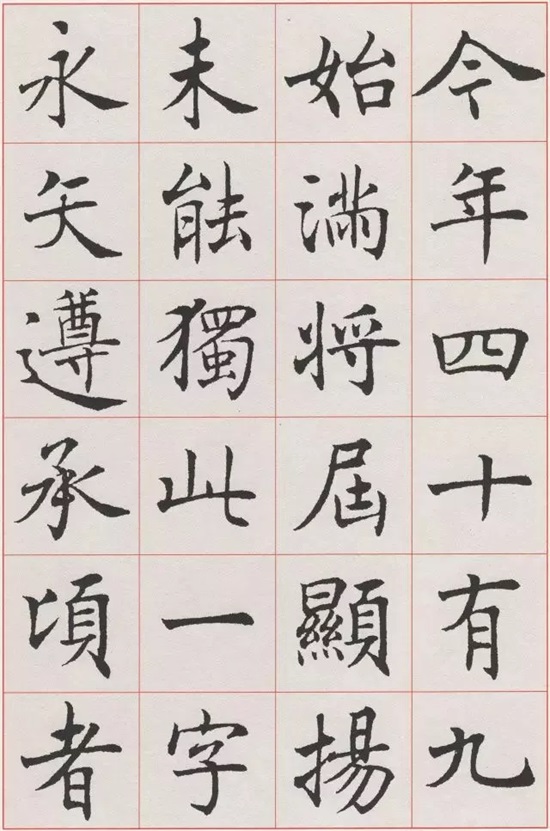 今年四十有九
始滿將屆顯揚
未能獨此一字
永矢遵承頃者